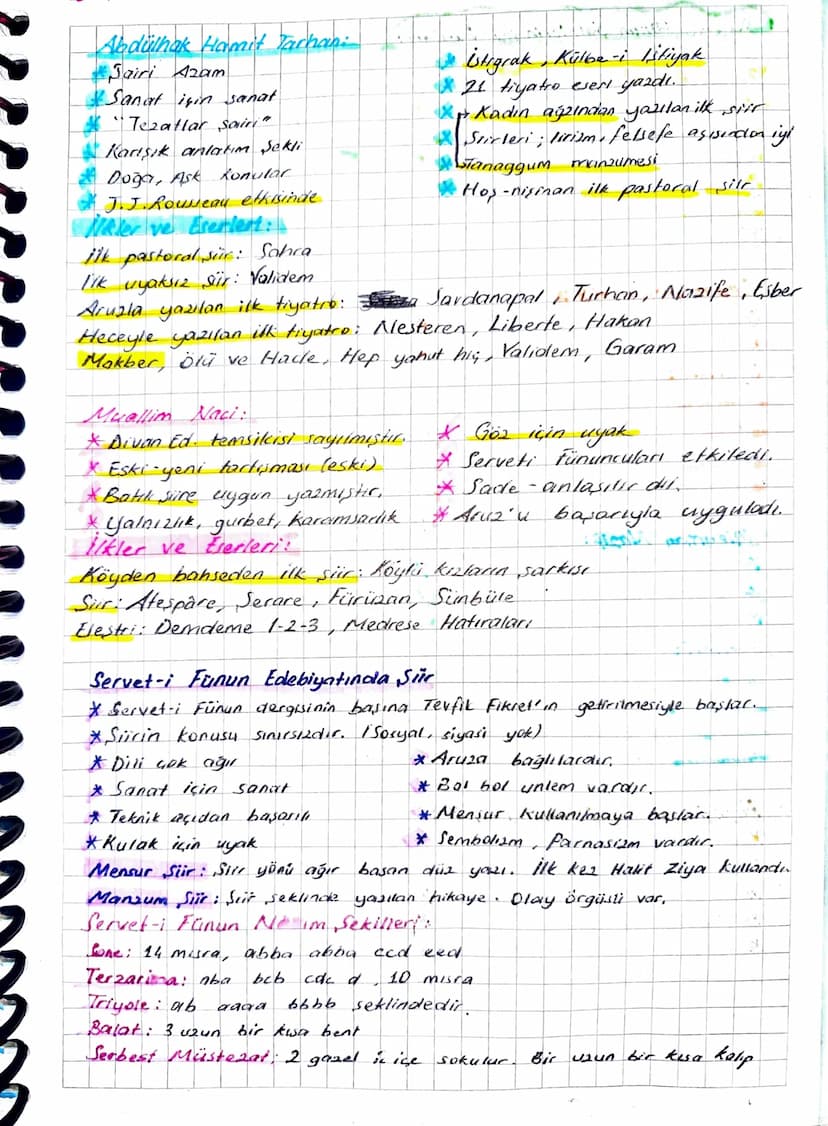 Abdülhak Hamit Tarhan:
* Şairi Azam
* Sanat için sanat
* "Tezatlar şairi"
* Karışık anlatım şekli
* Doğa, Aşk konular
* J.J.Rousseau etkisinde
* İstigrak, Külbe-i İştiyak
* 21 tiyatro eseri yazdı.
* Kadın ağzından yazılan ilk şiir
* Şiirleri; lirizm, felsefe açısından iyi
* manzumesi
* Hoş-nişinan ilk pastoral şiir
İlkler ve Eserleri:
İlk pastoral şiir: Sahra
İlk uyaksız şiir: Validem
Aruzla yazılan ilk tiyatro: Sardanapal, Turhan, Nazife, Eşber
Heceyle yazılan ilk tiyatro: Nesteren, Liberte, Hakan
Makber, Ölü ve Hacle, Hep yahut hiç, Validem, Garam
Muallim Naci:
* Divan Ed. temsilcisi sayılmıştır.
* Eski-yeni tartışması (eski)
* Batılı şiire uygun yazmıştır.
* Yalnızlık, gurbet, karamsarlık
* Göz için uyak
* Serveti Fünuncuları etkiledi.
* Sade-anlaşılır dil.
* Aruz'u başarıyla uyguladı.
İlkler ve Eserleri:
Köyden bahseden ilk şiir: Köylü kızların şarkısı
Şiir: Ateşpâre, Şerare, Fürüzan, Sünbüle
Eleştri: Demdeme 1-2-3, Medrese Hatıraları
Servet-i Fünun Edebiyatında Şiir
* Servet-i Fünun dergisinin başına Tevfik Fikret'in getirilmesiyle başlar.
* Şiirin konusu sınırsızdır. (Sosyal, siyasi yok)
* Dili çok ağır
* Sanat için sanat
* Teknik açıdan başarılı
* Kulak için uyak
* Aruza bağlılardır.
* Bol bol ünlem vardır.
* Mensur kullanılmaya başlar.
* Sembolizm, Parnasizm vardır.
Mensur Şiir: Şiir yönü ağır basan düz yazı. İlk kez Halit Ziya kullandı.
Manzum Şiir: Şiir şeklinde yazılan hikaye. Olay örgüsü var.
Servet-i Fünun Nazım Şekilleri:
Sone: 14 mısra, abba abba ccd eed
Terzarima: aba bcb cdc d, 10 mısra
Triyole: ab aaaa bbbb şeklindedir.
Balat: 3 uzun bir kısa bent
Serbest Müstezat: 2 gazel iç içe sokulur. Bir uzun bir kısa kalıp